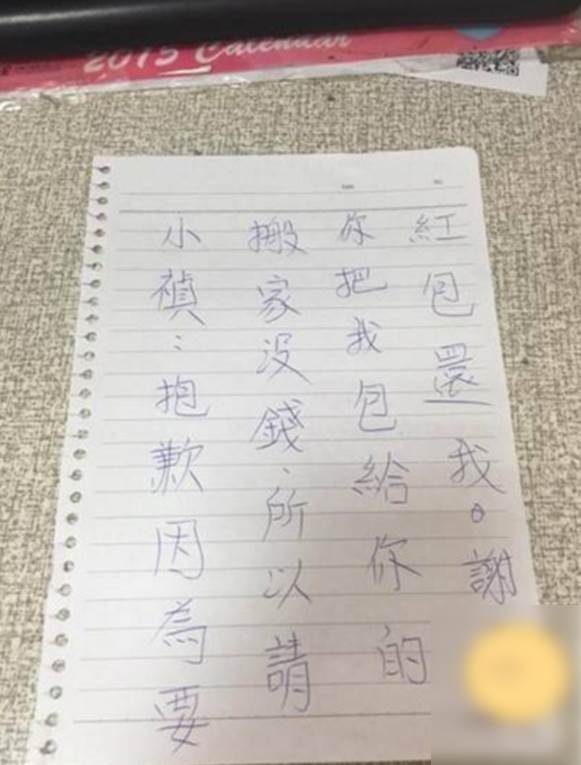 2015 Calendar
小禎：抱歉因為要
搬家没錢、所以請
你把我包給你的
紅包還我。謝